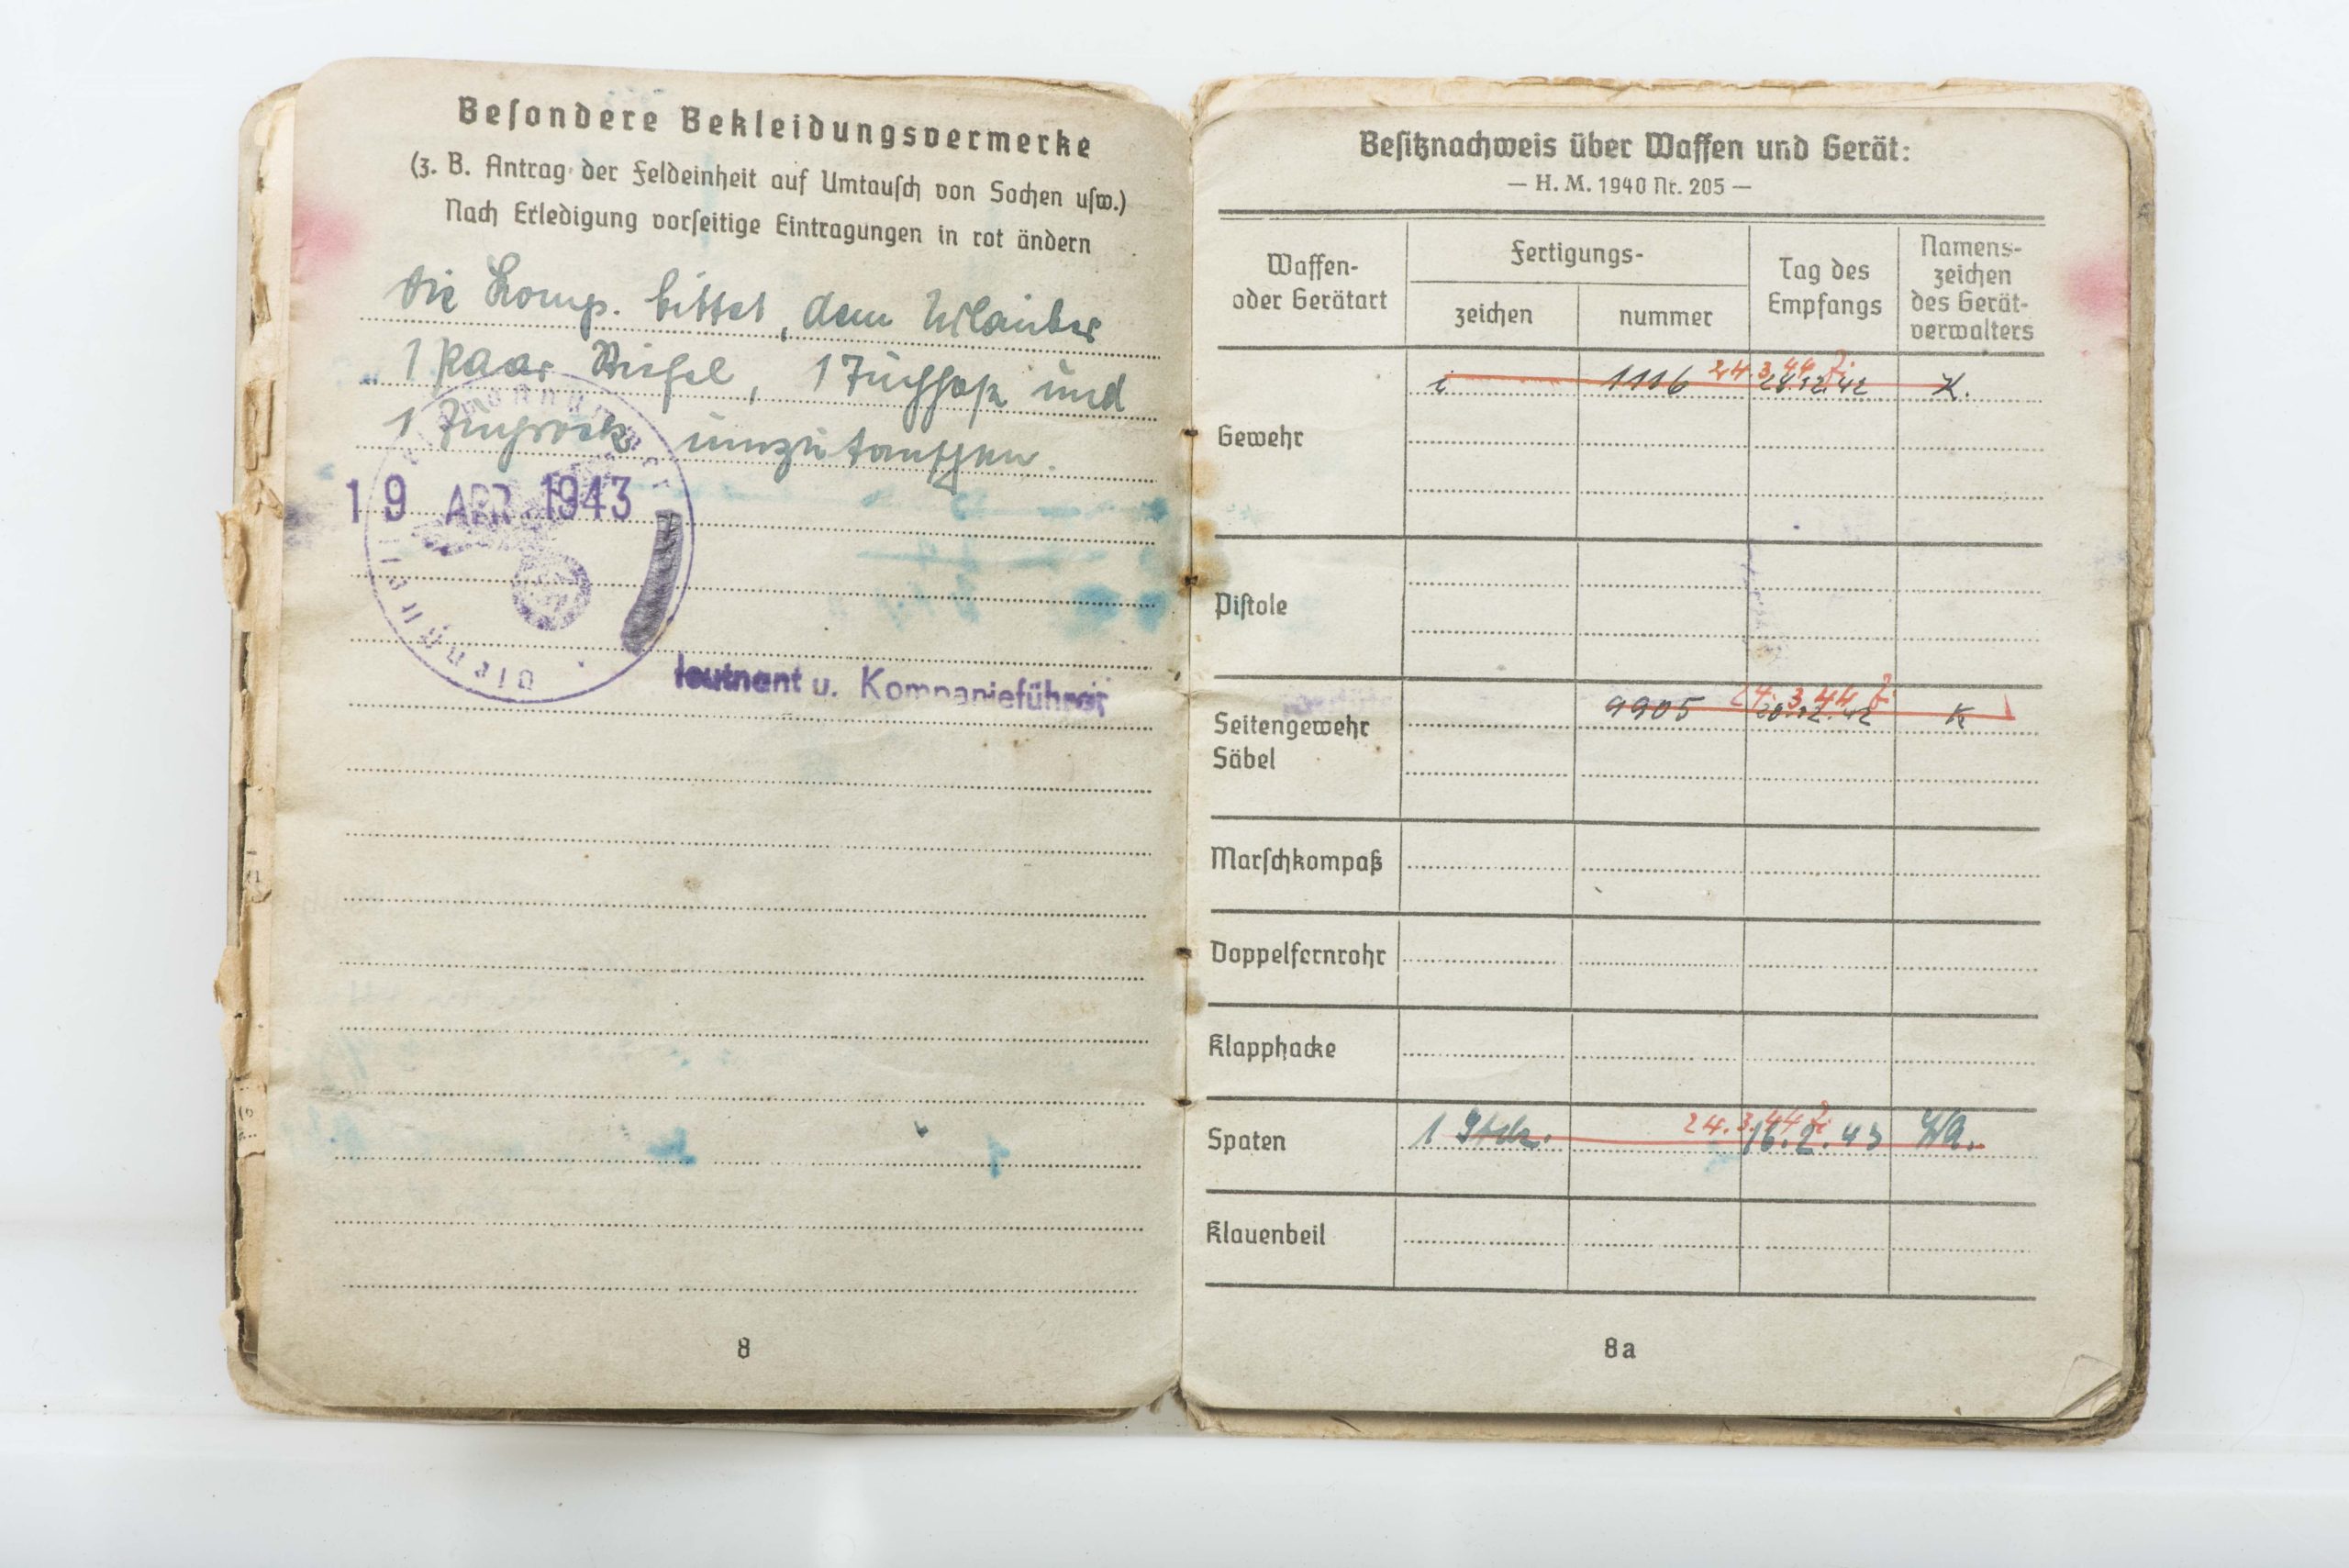 Besondere Bekleidungsvermerke
(z. B. Antrag der Feldeinheit auf Umtausch von Sachen usw.)
Nach Erledigung vorseitige Eintragungen in rot ändern
Die Komp. bittet, dem Urlauber
1 Paar Stiefel, 1 Tuchhose und
1 Tuchrock umzutauschen.
19 APR 1943
Dienststelle
Leutnant u. Kompanieführer
8
Besitznachweis über Waffen und Gerät:
— H. M. 1940 Nr. 205 —
Waffen- oder Gerätart
Fertigungs-
zeichen
nummer
Tag des Empfangs
Namens-
zeichen
des Gerät-
verwalters
24.3.44
Gewehr i 1116 28.12.42 K.
Pistole
24.3.44
Seitengewehr 9905 28.12.42 K
Säbel
Marschkompaß
Doppelfernrohr
Klapphacke
24.3.44
Spaten 1 Stck. 16.2.43
Klauenbeil
8a